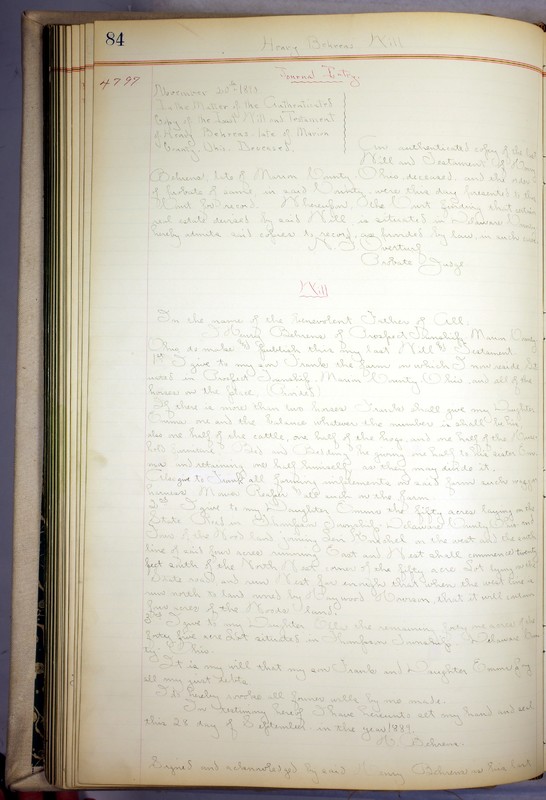 84
Henry Behrens Will
Journal Entry.
4797
November 1893
In the Matter of the Authenticated
Copy of the Last Will and Testament
of Henry Behrens, late of Marion
County, Ohio, Deceased.
An authenticated copy of the last
Will and Testament of Henry
Behrens, late of Marion County, Ohio, deceased, and the order
of Probate of same, in said County, were this day presented to this
Court for record. Wherefore, the Court finding that certain
real estate devised by said Will is situated in Delaware County,
hereby admits said copies to record, as provided by law, in such case.
Overturf
Probate Judge
Will
In the name of the benevolent Father of All.
I Henry Behrens of Prospect Township Marion County
Ohio do make & publish this my last Will & Testament.
1st I give to my son Frank the farm on which I now reside Sit
uated in Prospect Township, Marion County Ohio, and all of the
horses on the place.
If there is more than two horses Frank shall give my Daughter
Emma one and the balance whatever the number is shall be his
also one half of the cattle, one half of the hogs, and one half of the House
hold furniture Beds and Bedding he giving one half to his sister Em
ma and retaining one half himself as they may divide it.
I also give to Frank all farming implements on said farm such
as on the farm.
2nd I give to my Daughter Emma the fifty acres laying on the
State Road in Thompson Township Delaware County Ohio and
four of the Wood land joining on the west and the south
line of said four acres running East and West shall commence twenty
feet south of the North East corner of the fifty acre Lot lying on the
State road and run West far enough that when the west line is
run north to land owned by it will contain
four acres of the Woods land.
3rd I give to my Daughter the remaining forty one acres of the
forty five acre Lot situated in Thompson Township, Delaware Coun
ty Ohio.
It is my will that my son Frank and Daughter Emma pay
all my just debts.
I do hereby revoke all former wills by me made.
In testimony hereof I have hereunto set my hand and seal
this 28 day of September in the year 1889.
H. Behrens.
Signed and acknowledged by said Henry Behrens as his last